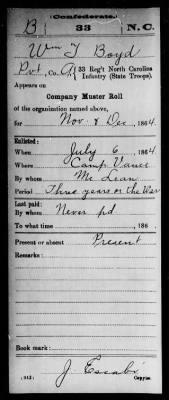 Confederate.
B 33 N.C.
Wm T Boyd
Pvt, Co. G, 33 Reg't North Carolina
Infantry (State Troops).
Appears on
Company Muster Roll
of the organization named above,
for Nov. & Dec, 1864.
Enlisted:
When July 6, 1864
Where Camp Vance
By whom Mc Lean
Period Three years or the War
Last paid:
By whom Never pd
To what time , 186 .
Present or absent Present
Remarks:
Book mark:
J. Escabi
Copyist.